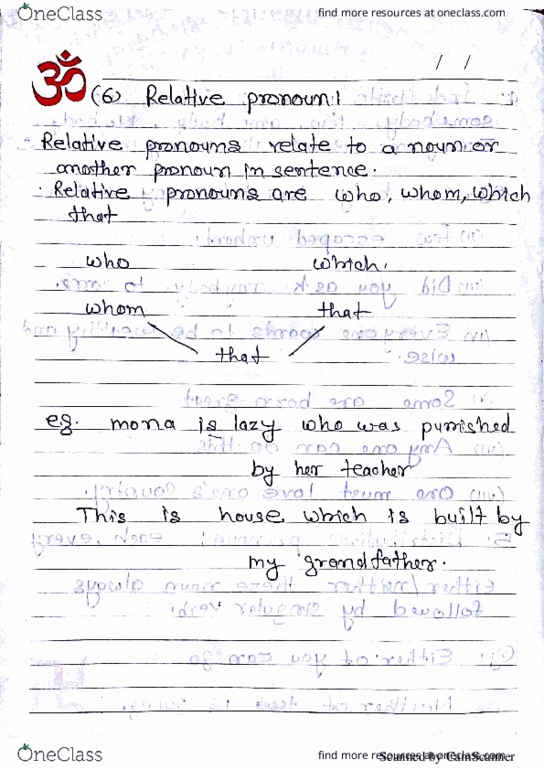 OneClass
find more resources at oneclass.com
ॐ
/ /
(6) Relative pronoun!
Relative pronouns relate to a noun or
another pronoun in sentence.
· Relative pronouns are who, whom, which
that
who which.
whom that
that
eg. mona is lazy who was punished
by her teacher
This is house which is built by
my grandfather.
OneClass
find more resources at oneclass.com
Scanned by CamScanner